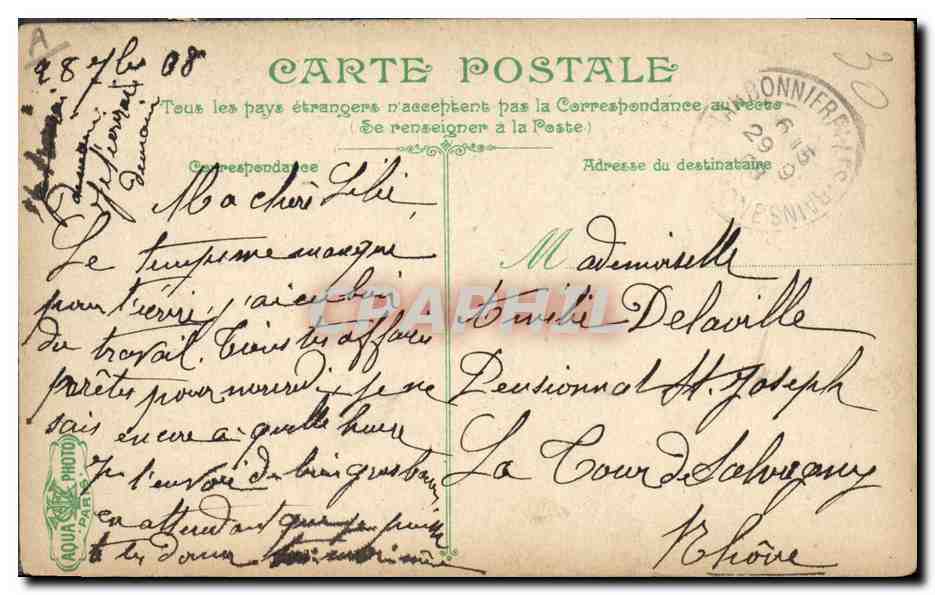 A
28 7bre 08
30
CARTE POSTALE
Tous les pays étrangers n'acceptent pas la Correspondance au recto
(Se renseigner à la Poste)
Correspondance
Adresse du destinataire
demain
Ma chère
Le temps me manque
pour t'écrire, j'ai eu bien
du travail. Tiens tes affaires
prêtes pour mercredi, je ne
sais encore à quelle heure
Je t'envoie de bien gros
en attendant que je puisse
te les donner
Mademoiselle
Emilie Delaville
Pensionnat St. Joseph
La Tour de Salvagny
Rhône
CHARBONNIERES LES BAINS
6 15
29 9
AQUA PHOTO
PARIS
CPAPHIL